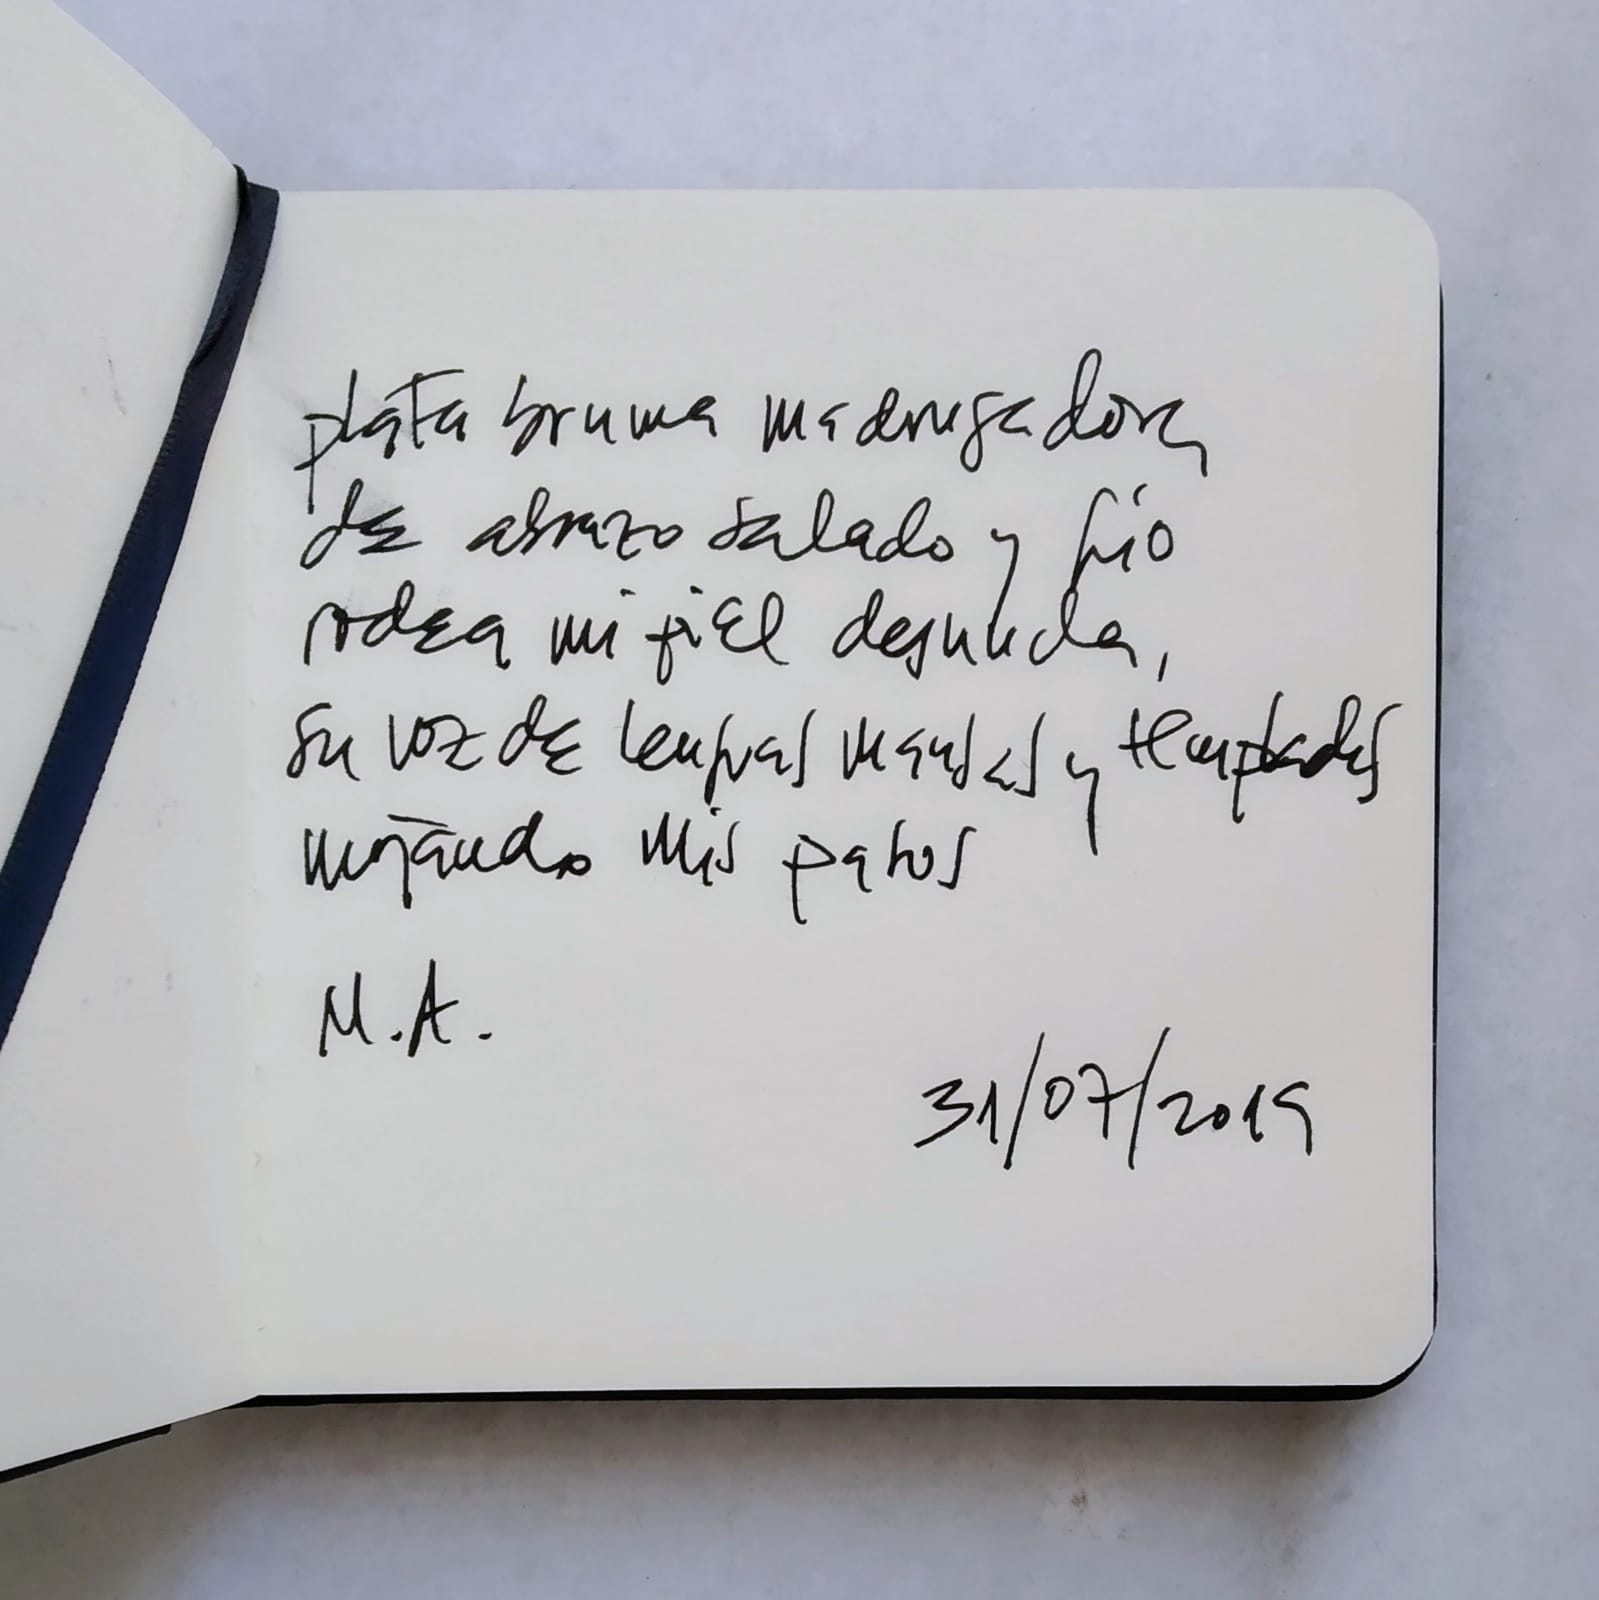 plata bruma madrugadora
de abrazo salado y frío
rodea mi piel desnuda,
su voz de lenguas mansas y templadas
mojando mis pasos
M.A.
31/07/2019